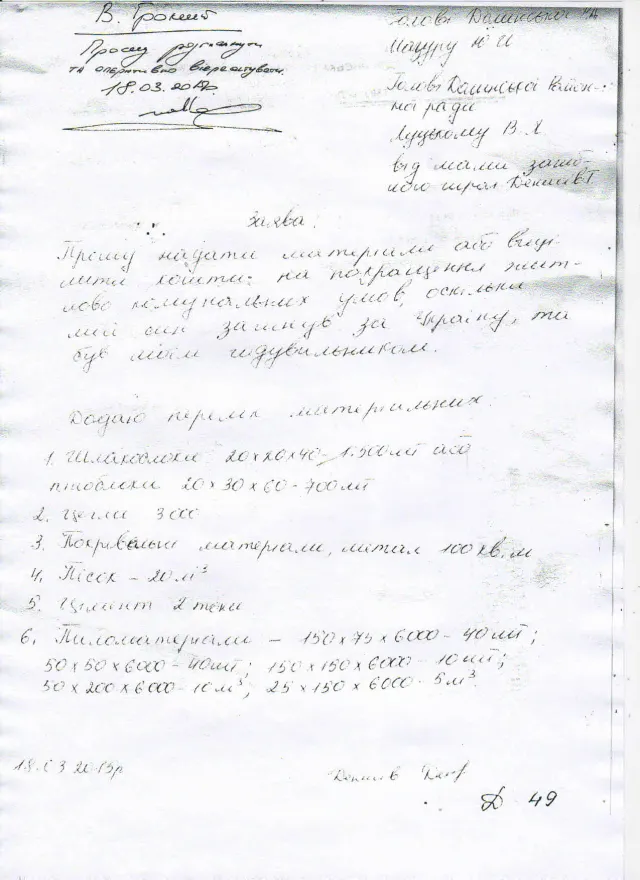 В. Громик
Прошу розглянути
та оперативно відреагувати.
18.03.
Голові Долинської РДА
Мацуру Ю И
Голові Долинської Район-
ної ради
Луцькому В. Я.
від мами заги-
блого
Заява.
Прошу надати матеріали або виді-
лити кошти: на покращення жит-
лово комунальних умов, оскільки
мій син загинув за Україну, та
був моїм годувильником.
Додаю перелік матеріальних:
1. Шлакоблоки 20х20х40 - 1.500шт або
піноблоки 20х30х60 - 700шт
2. Цегли 3000
3. Покрівельні матеріали, метал 100 кв.м
4. Пісок - 20м³
5. Цимент 2 тони
6. Пиломатеріали - 150х75х6000 - 40шт;
50х50х6000 - 40шт; 150х150х6000 - 10шт;
50х200х6000 - 10м³; 25х150х6000 - 5м³.
18.03.2015р
Д 49